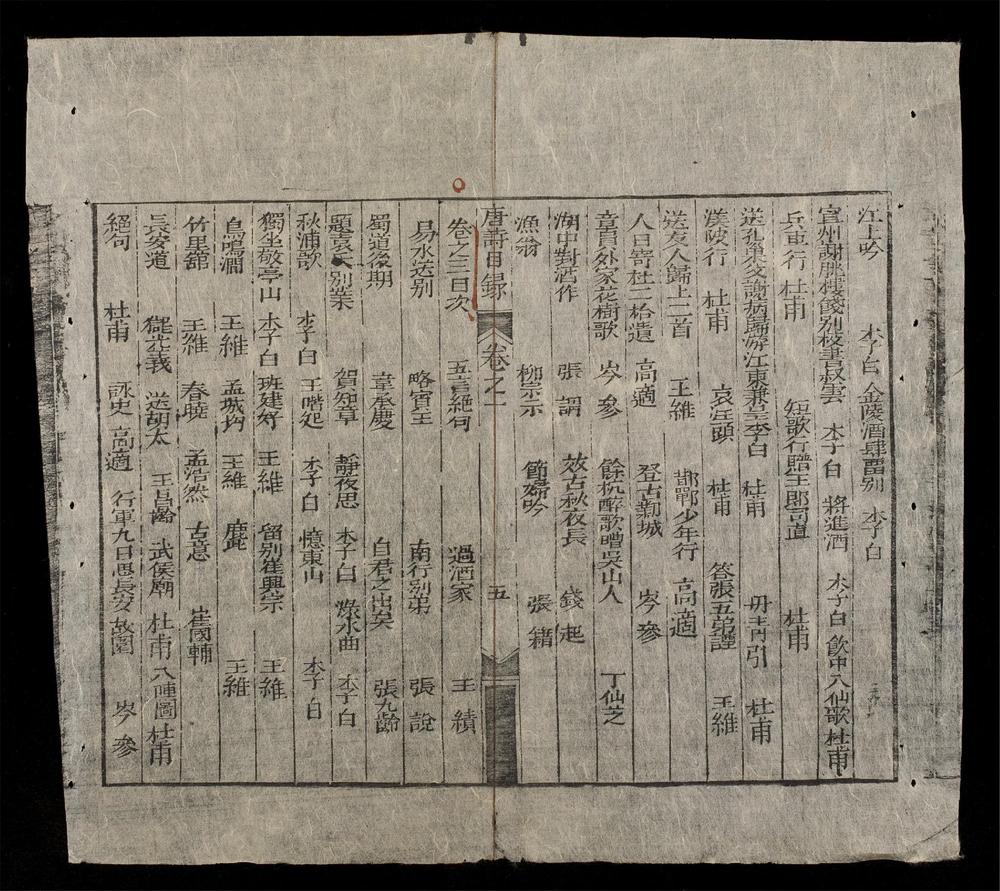 江上吟 李白 金陵酒肆畱别 李白
宣州謝朓樓餞别校書叔雲 李白 將進酒 李白 飲中八仙歌 杜甫
兵車行 杜甫 短歌行贈王郎司直 杜甫
送孔巢父謝病歸游江東兼呈李白 杜甫 丹青引 杜甫
渼陂行 杜甫 哀江頭 杜甫 答張五弟諲 王維
送友人歸上二首 王維 邯鄲少年行 高適
人日寄杜二拾遺 高適 登古鄴城 岑參
韋員外家花樹歌 岑參 餘杭醉歌贈吳山人 丁仙芝
湖中對酒作 張謂 效古秋夜長 錢起
漁翁 柳宗元 節婦吟 張籍
唐詩目録 卷之一 五
卷之三目次 五言絶句 過酒家 王績
易水送别 駱賓王 南行别弟 張說
蜀道後期 韋承慶 自君之出矣 張九齡
題袁氏别業 賀知章 靜夜思 李白 淥水曲 李白
秋浦歌 李白 王階 李白 憶東山 李白
獨坐敬亭山 李白 班婕妤 王維 留别崔興宗 王維
鳥鳴澗 王維 孟城坳 王維 鹿 王維
竹里舘 王維 春曉 孟浩然 古意 崔國輔
長安道 儲光羲 送胡大 王昌齡 武侯廟 杜甫 八陣圖 杜甫
絕句 杜甫 詠史 高適 行軍九日思長安故園 岑參